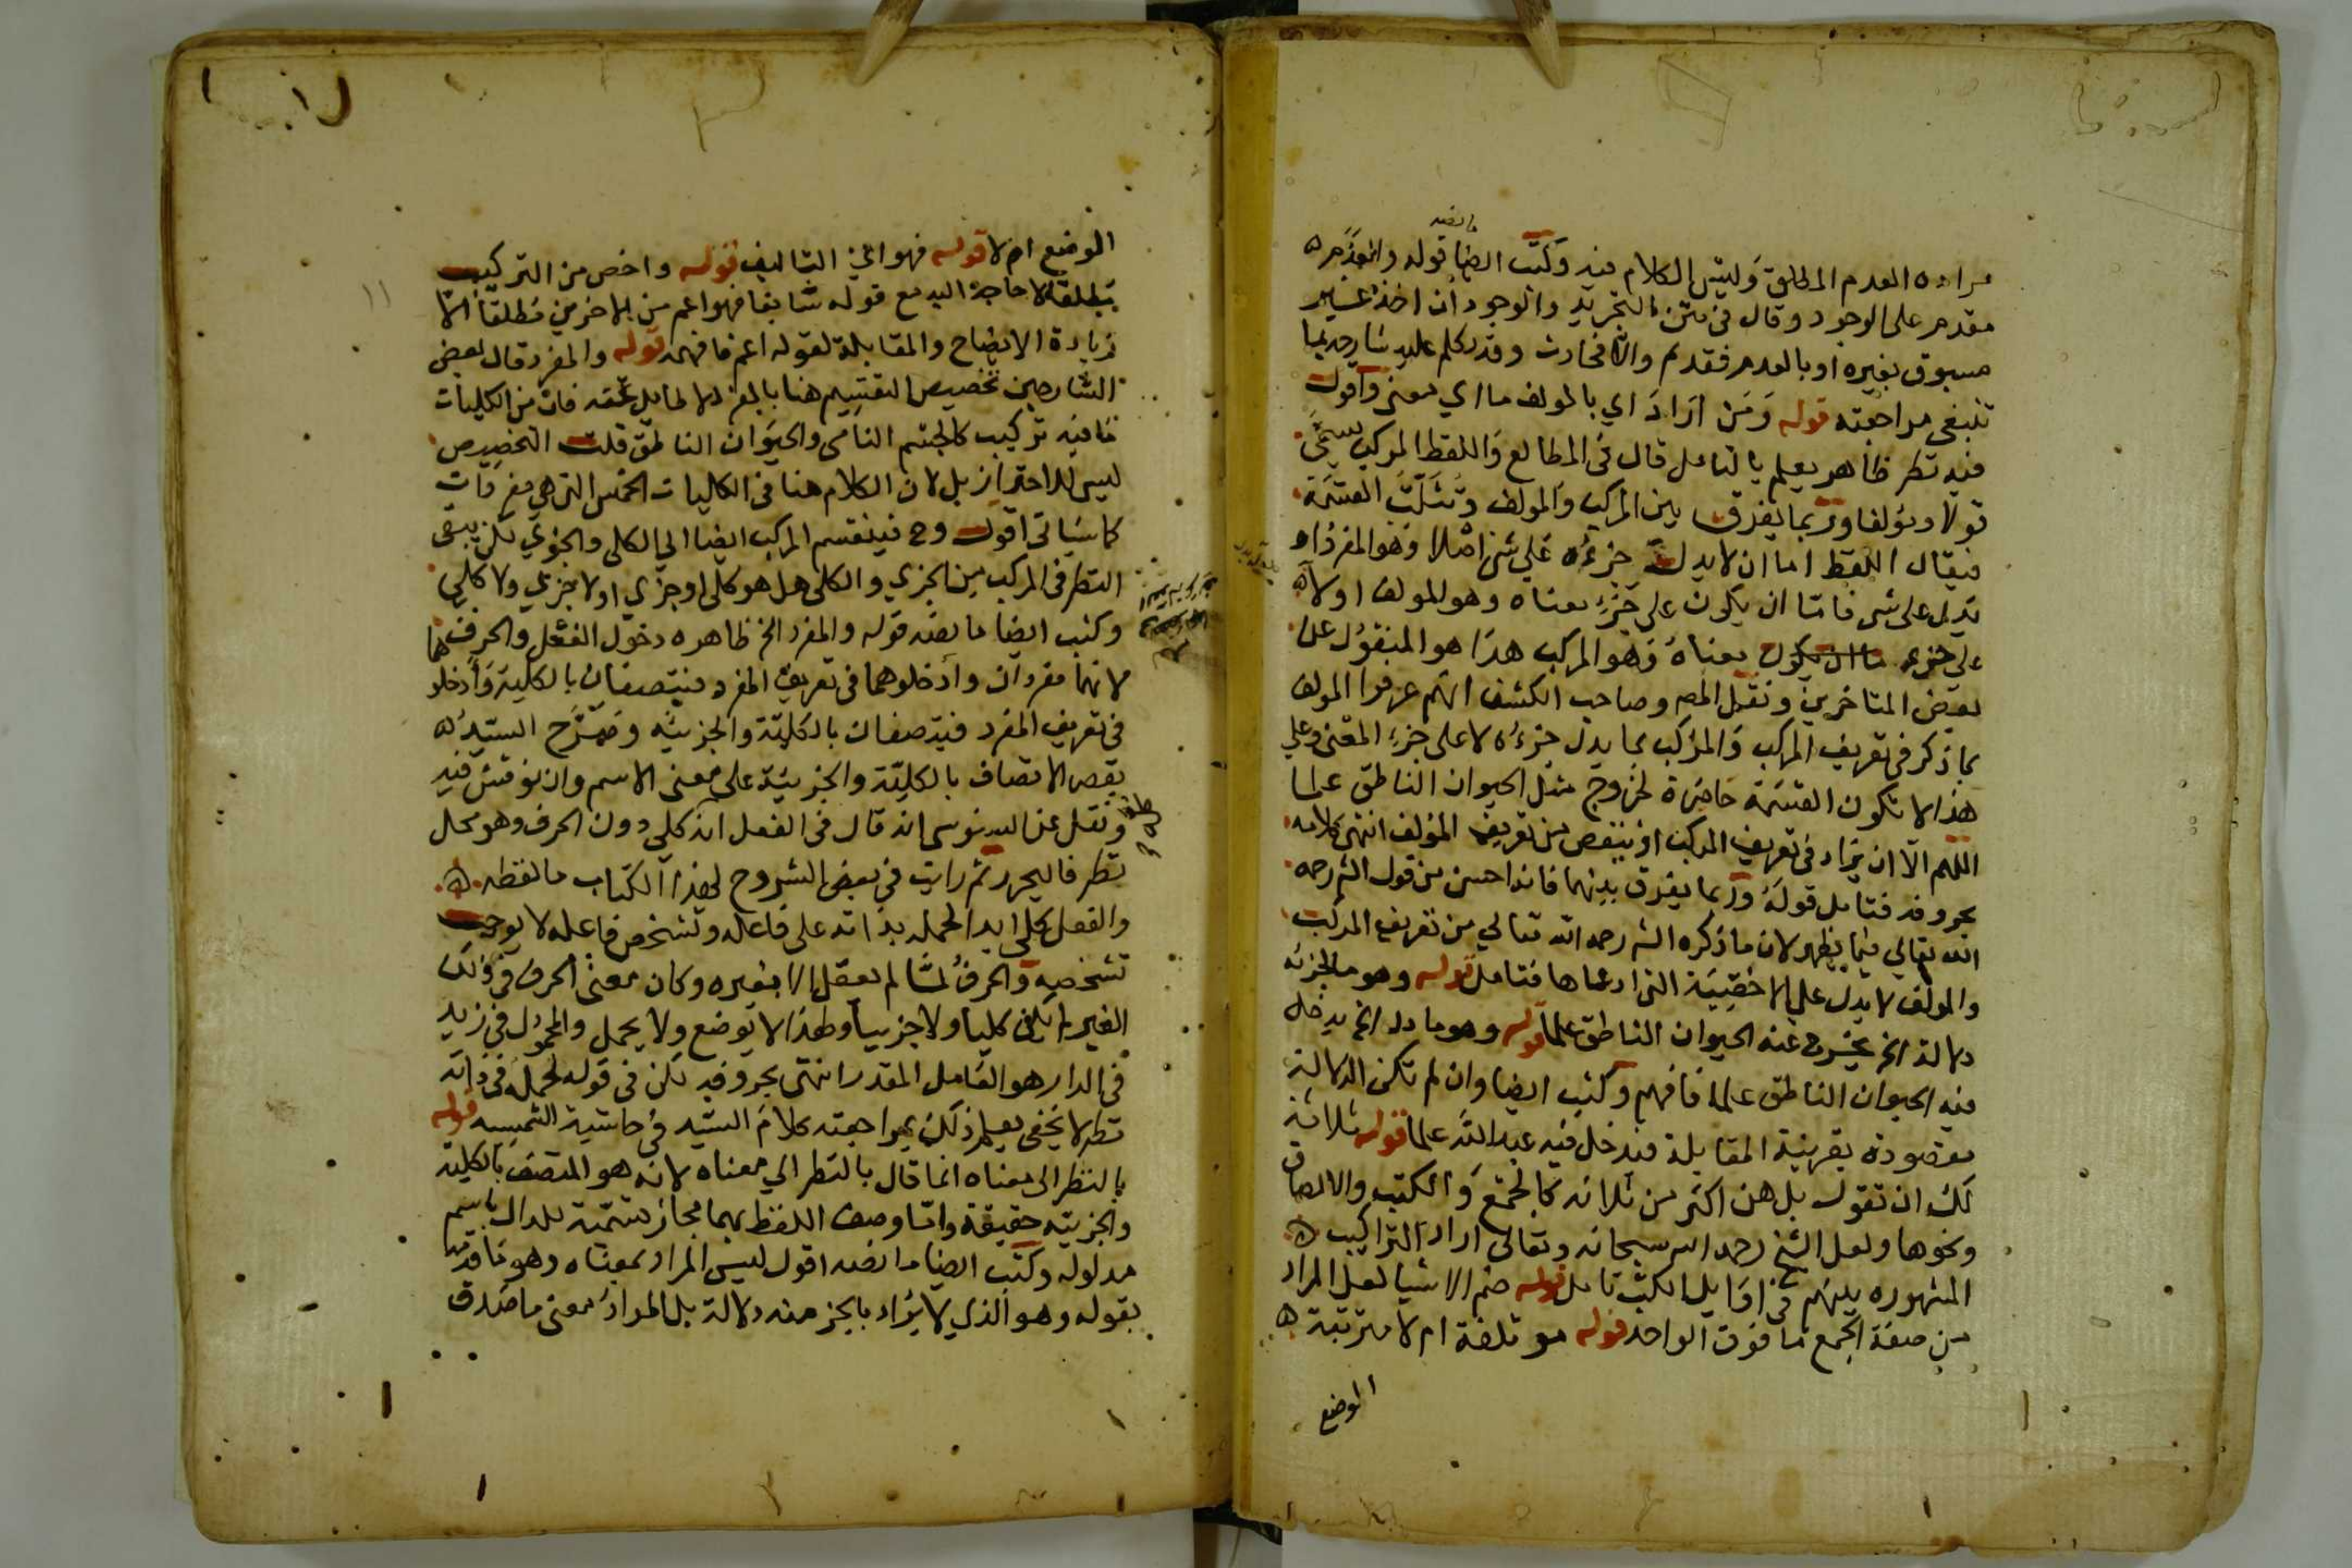 مراده العدم المطلق وليس الكلام فيه وكتب ايضا قوله والعدم
ما نصه
مقدم على الوجود وقال في متن التجريد والوجود ان اخذ غير
مسبوق بغيره او بالعدم فقديم والا فحادث وقد تكلم عليه شارحه بما
تنبغي مراجعته قوله ومن اراد اي بالمولف ما اي معنى واقول
فيه نظر ظاهر يعلم بالتامل قال في المطالع واللفظ المركب يسمى
قولا ومؤلفا وربما يفرق بين المركب والمولف وتثلث القسمة
فيقال اللفظ اما ان لا يدل جزءه على شئ اصلا وهو المفرد او
يدل على شئ فاما ان يكون على جزء معناه وهو المولف اولا
على جزء معناه وهو المركب هذا هو المنقول عن
بعض المتاخرين ونقل المص وصاحب الكشف انهم عرفوا المولف
بما ذكر في تعريف المركب والمركب بما يدل جزءه لا على جزء المعنى وعلى
هذا لا تكون القسمة حاصرة لخروج مثل الحيوان الناطق علما
اللهم الا ان يزاد في تعريف المركب او ينقص من تعريف المؤلف انتهى كلامه
بحروفه فتامل قوله وربما يفرق بينهما فانه احسن من قول الش رحمه
الله تعالى فيما يظهر لان ما ذكره الش رحمه الله تعالى من تعريف المركب
والمولف لا يدل على الاخصية التي ادعاها فتامل قوله وهو ما لجزئه
دلالة الخ يخرج عنه الحيوان الناطق علما قوله وهو ما دل الخ يدخل
فيه الحيوان الناطق علما فافهم وكتب ايضا وان لم تكن الدلالة
مقصودة بقرينة المقابلة فيدخل فيه عبد الله علما قوله ثلاثة
لك ان تقول بل هن اكثر من ثلاثة كالجمع والكتب والالصاق
ونحوها ولعل الشيخ رحمه الله سبحانه وتعالى اراد التراكيب
المشهوره بينهم في اوايل الكتب تامل قوله ضم الاشيا لعل المراد
من صيغة الجمع ما فوق الواحد قوله موتلفة ام لا مترتبة
الوضع
الوضع ام لا قوله فهو اي التاليف قوله واخص من التركيب
مطلقا لا حاجة اليه مع قوله سابقا فهو اعم من الاخرين مطلقا الا
زيادة الايضاح والمقابلة لقوله اعم فافهمه قوله والمفرد قال بعض
الشارحين تخصيص التقسيم هنا بالمفرد لا طايل تحته فان من الكليات
ما فيه تركيب كالجسم النامي والحيوان الناطق قلت التخصيص
ليس للاحتراز بل لان الكلام هنا في الكليات الخمس التي هي مفردات
كما سياتي اقول وح فينقسم المركب ايضا الى الكلي والجزي لكن يبقى
النظر في المركب من الجزي والكلي هل هو كلي او جزي او لا جزي ولا كلي
وكتب ايضا ما نصه قوله والمفرد الخ ظاهره دخول الفعل والحرف
لانهما مفردان وادخلوهما في تعريف المفرد فيتصفان بالكلية وادخلو
في تعريف المفرد فيتصفان بالكلية والجزئية وصرح السيد
بقصر الاتصاف بالكلية والجزئية على معنى الاسم وان نوقش فيه
ونقل عن السنوسي انه قال في الفعل انه كلي دون الحرف وهو محل
نظر فاليحرر ثم رايت في بعض الشروح لهذا الكتاب ما لفظه
والفعل كلي ابدا لحمله بذاته على فاعله وتشخص فاعله لا يوجب
تشخصه والحرف لما لم يعقل الا بغيره وكان معنى الحرف في ذلك
الغير لم يكن كليا ولا جزييا ولهذا لا يوضع ولا يحمل والمحمول في زيد
في الدار هو العامل المقدر انتهى بحروفه لكن في قوله لحمله في ذاته
نظر لا يخفى يعلم ذلك بمراجعته كلام السيد في حاشية الشمسيه قوله
بالنظر الى معناه انما قال بالنظر الى معناه لانه هو المتصف بالكلية
والجزيية حقيقة واما وصف اللفظ بهما مجاز تسمية للدال باسم
مدلوله وكتب ايضا ما نصه اقول ليس المراد بمعناه وهو ما قدمه
بقوله وهو الذي لا يراد بالجز منه دلالة بل المراد معنى ما صدق